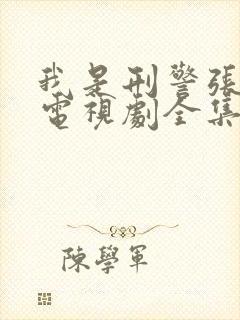 我是刑警張
電視劇全集
陳學軍